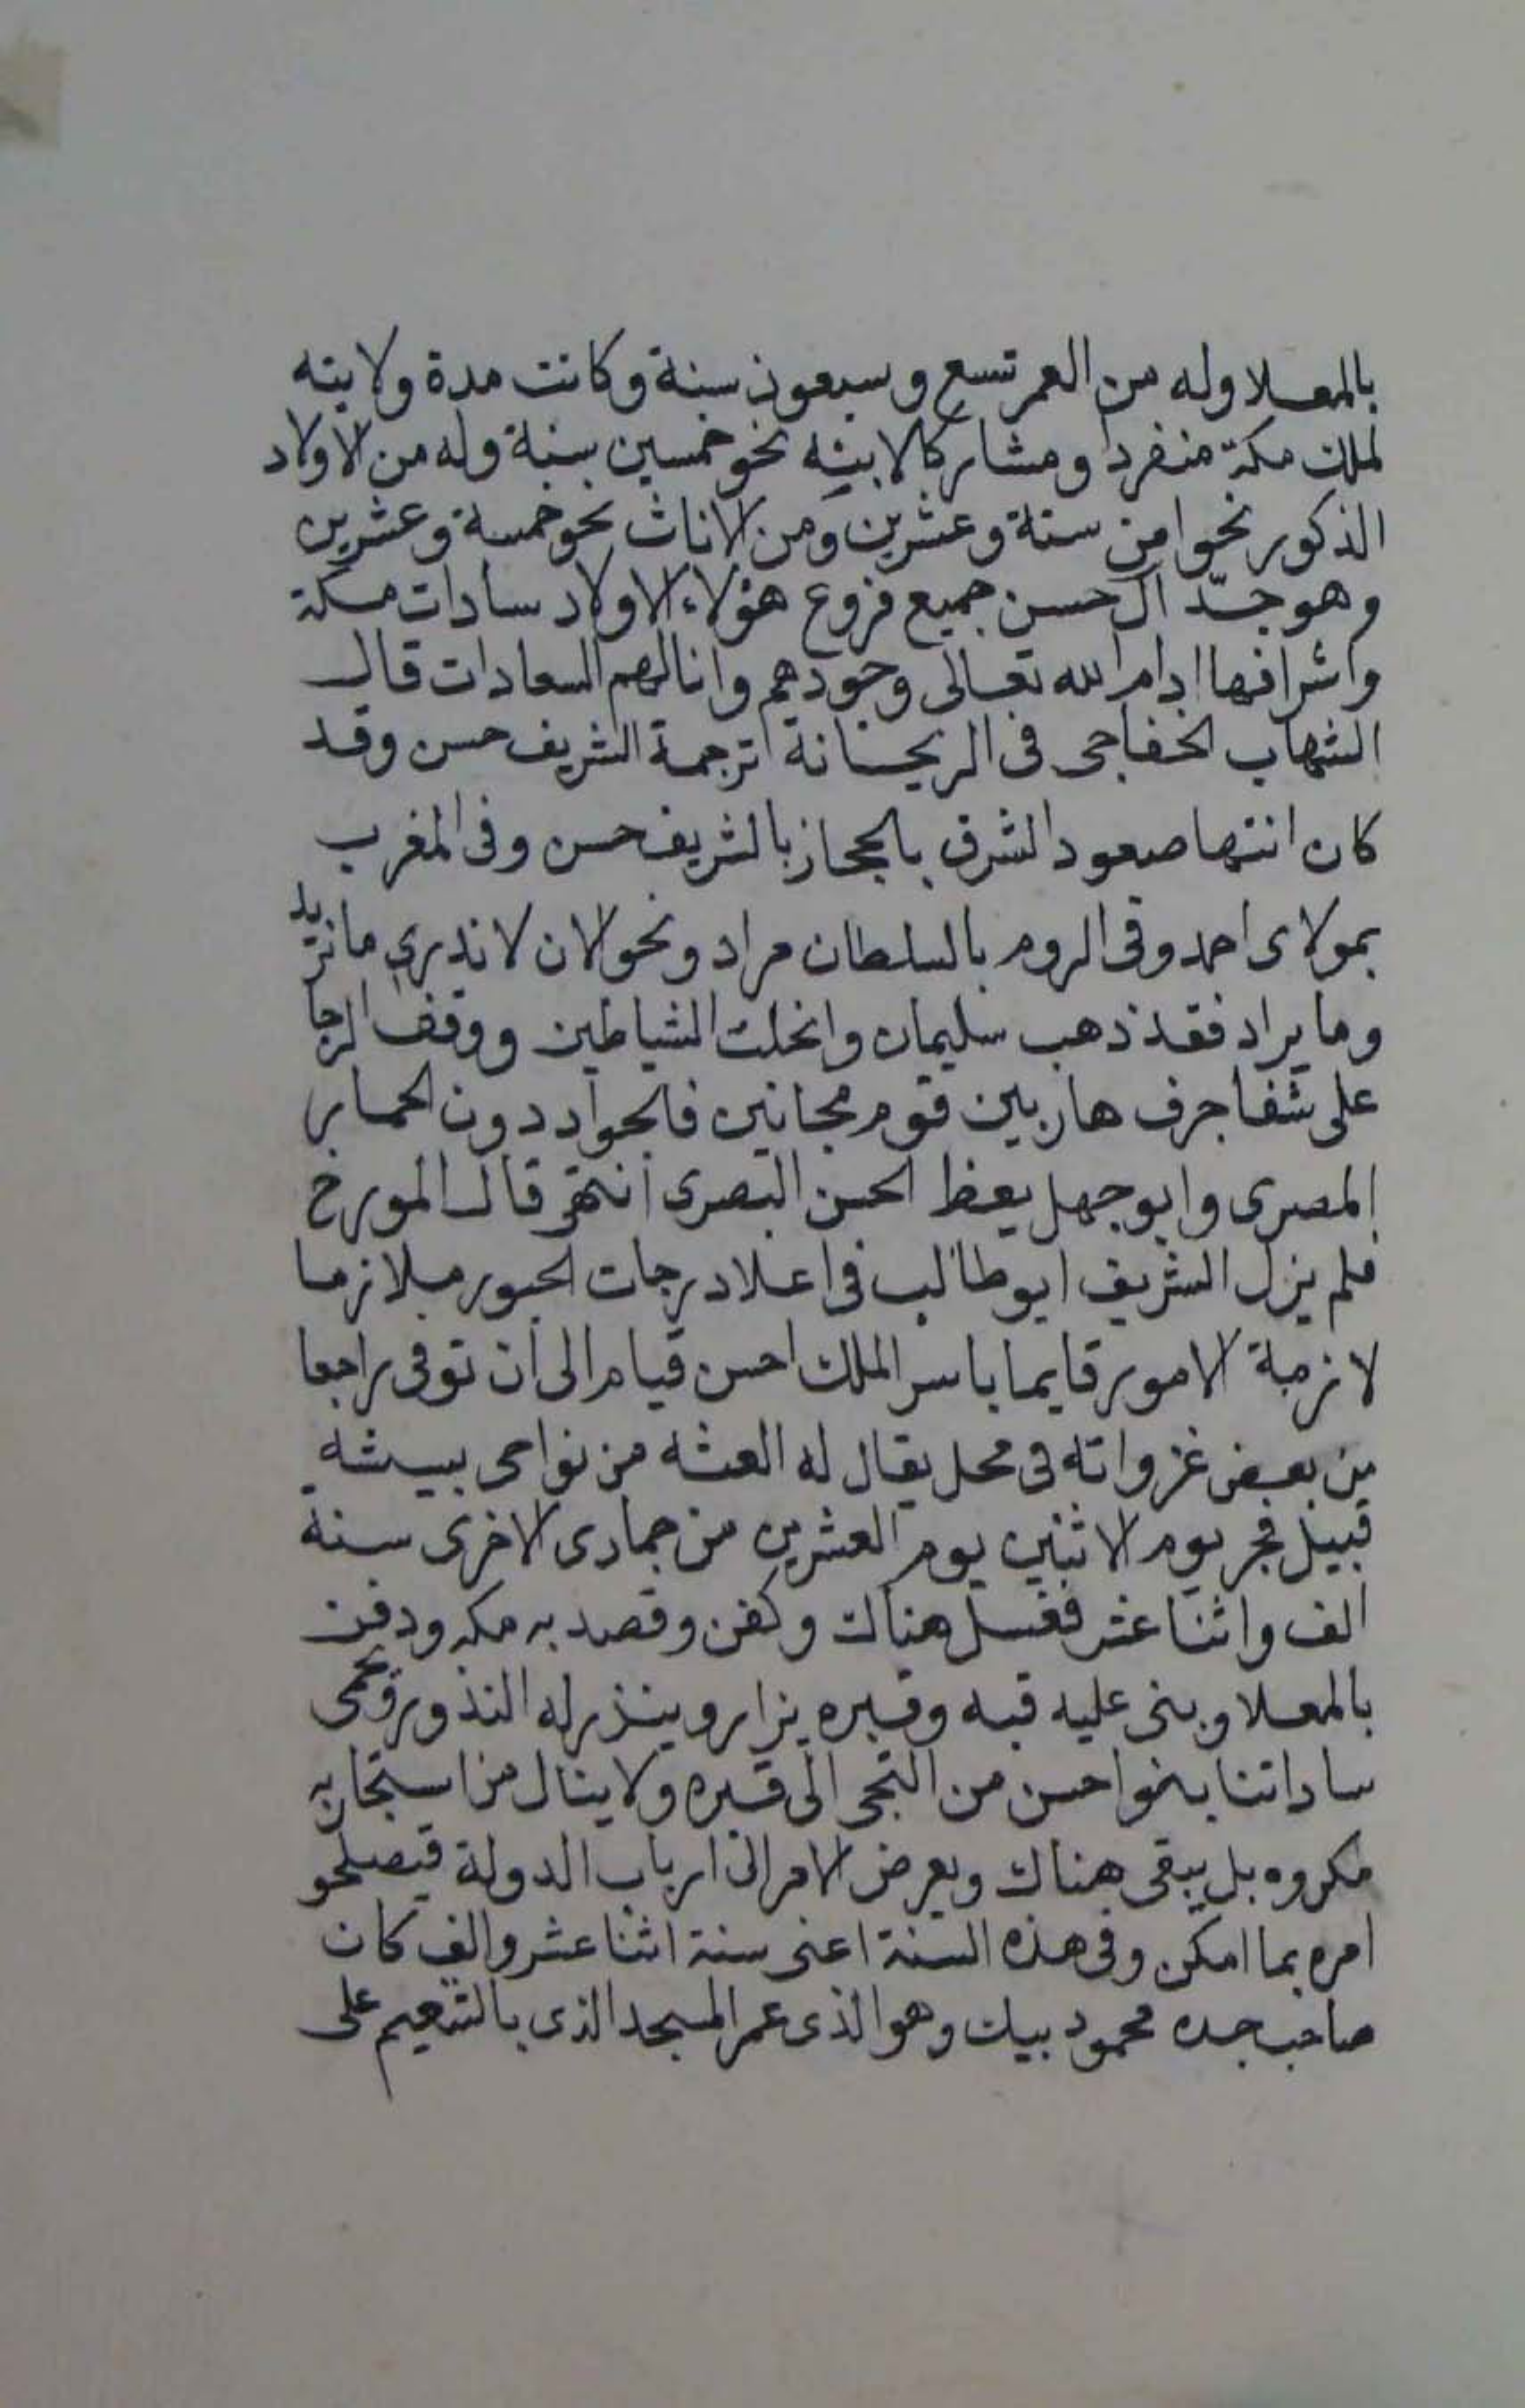 بالمعلا وله من العمر تسع وسبعون سنة وكانت مدة ولايته
لملك مكة منفردا ومشاركا لابيه نحو خمسين سنة وله من الاولاد
الذكور نحوا من ستة وعشرين ومن الاناث نحو خمسة وعشرين
وهو جدّ آل حسن جميع فروع هؤلاء الاولاد سادات مكة
واشرافها ادام الله تعالى وجودهم وانالهم السعادات قال
الشهاب الخفاجى فى الريحانة ترجمة الشريف حسن وقد
كان انتها صعود الشرف بالحجاز بالشريف حسن وفى المغرب
بمولاى احمد وفى الروم بالسلطان مراد ونحو الان لا ندرى ما نريد
وما يراد فقد ذهب سليمان وانحلت الشياطين ووقف الرجا
على شفا جرف هار بين قوم مجانين فالجواد دون الحمار
المصرى وابو جهل يعظ الحسن البصرى انتهى قال المورخ
فلم يزل الشريف ابو طالب فى اعلا درجات الحبور ملازما
لازمة الامور قايما باسر الملك احسن قيام الى ان توفى راجعا
من بعض غزواته فى محل يقال له العشه من نواحى بيشه
قبيل فجر يوم الاثنين يوم العشرين من جمادى الاخرى سنة
الف واثنا عشر فغسل هناك وكفن وقصد به مكه ودفن
بالمعلا وبنى عليه قبه وقبره يزار وينذر له النذور وتحمى
ساداتنا بنوا حسن من التجى الى قبره ولا ينال من استجار به
مكروه بل يبقى هناك ويعرض الامر الى ارباب الدولة فيصلحو
امره بما امكن وفى هذه السنة اعنى سنة اثنا عشر والف كان
صاحب جده محمود بيك وهو الذى عمر المسجد الذى بالتنعيم على